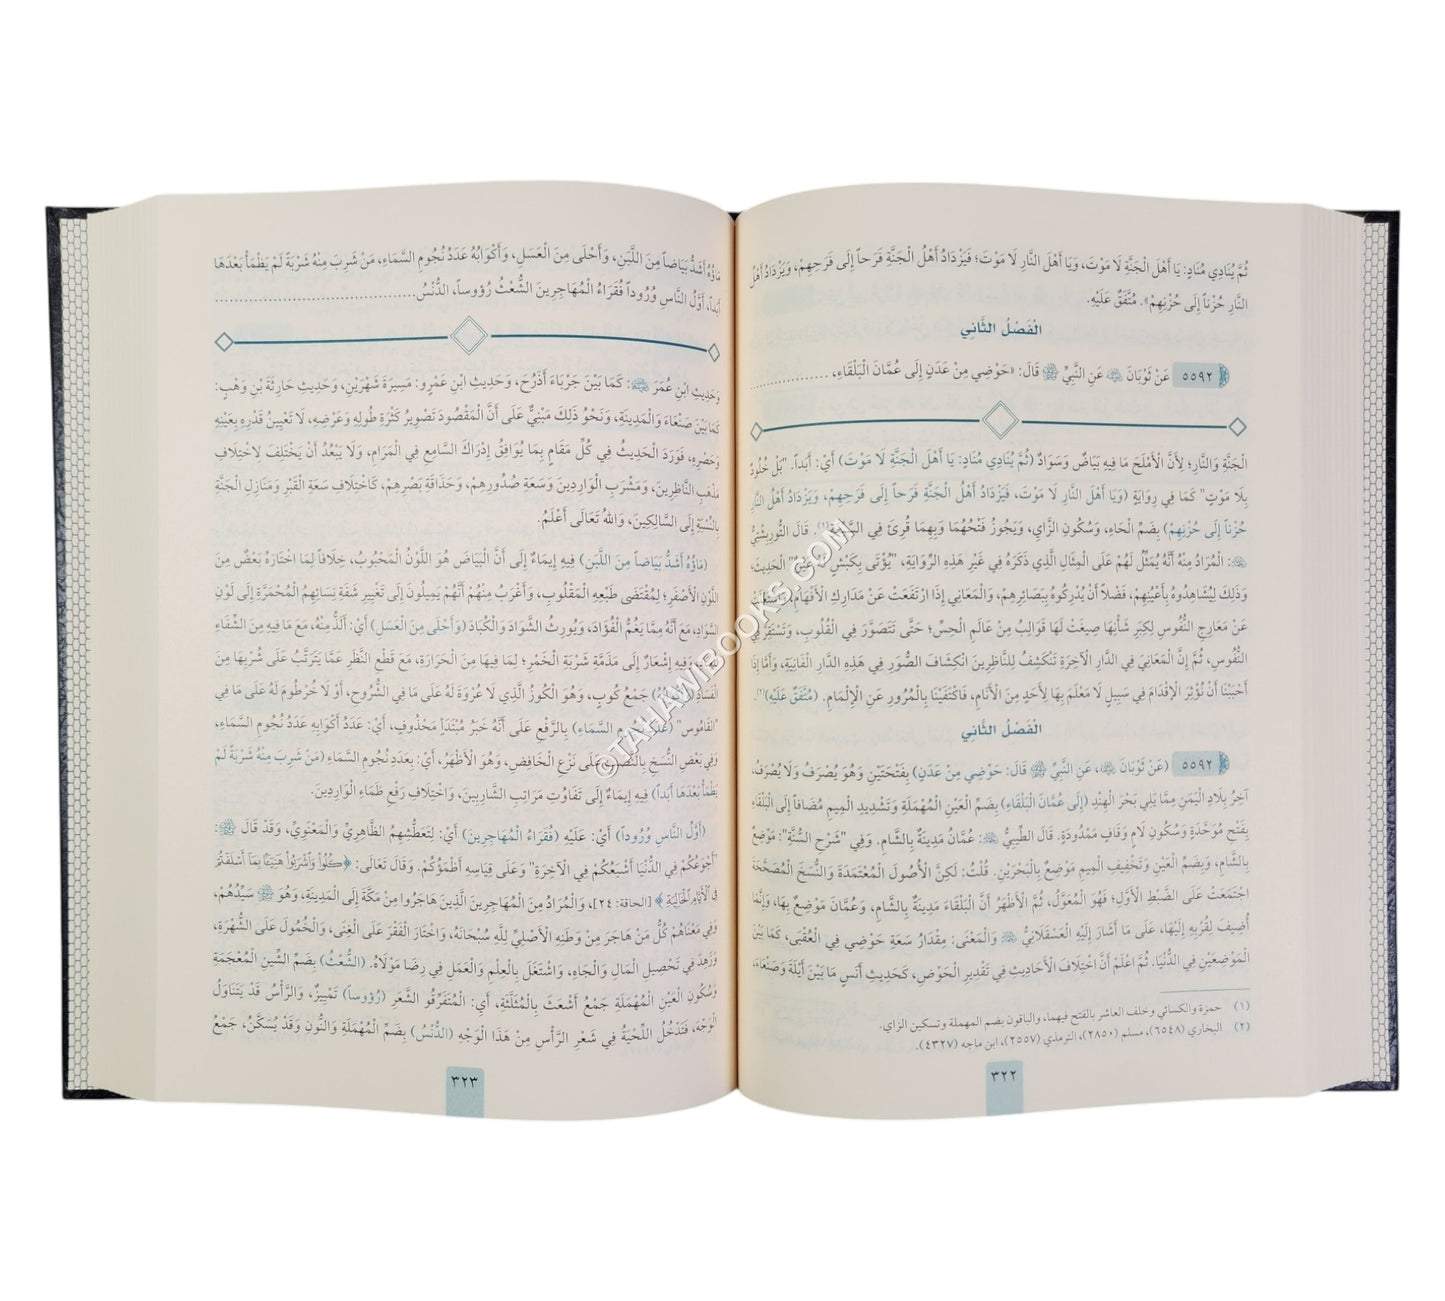 ثُمَّ يُنَادِي مُنَادٍ: يَا أَهْلَ الْجَنَّةِ لَا مَوْتَ، وَيَا أَهْلَ النَّارِ لَا مَوْتَ؛ فَيَزْدَادُ أَهْلُ الْجَنَّةِ فَرَحاً إِلَى فَرَحِهِمْ، وَيَزْدَادُ أَهْلُ
النَّارِ حُزْناً إِلَى حُزْنِهِمْ». مُتَّفَقٌ عَلَيْهِ.
الْفَصْلُ الثَّانِي
٥٥٩٢ عَنْ ثَوْبَانَ ﷺ عَنِ النَّبِيِّ ﷺ قَالَ: «حَوْضِي مِنْ عَدَنٍ إِلَى عُمَّانَ الْبَلْقَاءِ، ..............
الْجَنَّةِ وَالنَّارِ؛ لِأَنَّ الْأَمْلَحَ مَا فِيهِ بَيَاضٌ وَسَوَادٌ (ثُمَّ يُنَادِي مُنَادٍ: يَا أَهْلَ الْجَنَّةِ لَا مَوْتَ) أَيْ: أَبَداً. "بَلْ خُلُودٌ
بِلَا مَوْتٍ" كَمَا فِي رِوَايَةٍ (وَيَا أَهْلَ النَّارِ لَا مَوْتَ، فَيَزْدَادُ أَهْلُ الْجَنَّةِ فَرَحاً إِلَى فَرَحِهِمْ، وَيَزْدَادُ أَهْلُ النَّارِ
حُزْناً إِلَى حُزْنِهِمْ) بِضَمِّ الْحَاءِ، وَسُكُونِ الزَّاي، وَيَجُوزُ فَتْحُهُمَا وَبِهِمَا قُرِئَ فِي السَّبْعَةِ(١). قَالَ التُّورِبِشْتِيُّ
: الْمُرَادُ مِنْهُ أَنَّهُ يُمَثَّلُ لَهُمْ عَلَى الْمِثَالِ الَّذِي ذَكَرَهُ فِي غَيْرِ هَذِهِ الرِّوَايَةِ، "يُؤْتَى بِكَبْشٍ لَهُ عَيْنٌ" الْحَدِيثَ؛
وَذَلِكَ لِيُشَاهِدُوهُ بِأَعْيُنِهِمْ، فَضْلاً أَنْ يُدْرِكُوهُ بِبَصَائِرِهِمْ، وَالْمَعَانِي إِذَا ارْتَفَعَتْ عَنْ مَدَارِكِ الْأَفْهَامِ، وَاسْتَعْلَتْ
عَنْ مَعَارِجِ النُّفُوسِ لِكِبَرِ شَأْنِهَا صِيغَتْ لَهَا قَوَالِبُ مِنْ عَالَمِ الْحِسِّ؛ حَتَّى تَتَصَوَّرَ فِي الْقُلُوبِ، وَتَسْتَقِرَّ فِي
النُّفُوسِ، ثُمَّ إِنَّ الْمَعَانِيَ فِي الدَّارِ الْآخِرَةِ تَنْكَشِفُ لِلنَّاظِرِينَ انْكِشَافَ الصُّوَرِ فِي هَذِهِ الدَّارِ الْفَانِيَةِ، وَأَمَّا إِذَا
أَحْبَبْنَا أَنْ نُؤْثِرَ الْإِقْدَامَ فِي سَبِيلٍ لَا مَعْلَمَ بِهَا لِأَحَدٍ مِنَ الْأَنَامِ، فَاكْتَفَيْنَا بِالْمُرُورِ عَنِ الْإِلْمَامِ. (مُتَّفَقٌ عَلَيْهِ)(٢).
الْفَصْلُ الثَّانِي
٥٥٩٢ (عَنْ ثَوْبَانَ ، عَنِ النَّبِيِّ ﷺ قَالَ: حَوْضِي مِنْ عَدَنٍ) بِفَتْحَتَيْنِ وَهُوَ يُصْرَفُ وَلَا يُصْرَفُ،
آخِرُ بِلَادِ الْيَمَنِ مِمَّا يَلِي بَحْرَ الْهِنْدِ (إِلَى عُمَّانَ الْبَلْقَاءِ) بِضَمِّ الْعَيْنِ الْمُهْمَلَةِ وَتَشْدِيدِ الْمِيمِ مُضَافاً إِلَى الْبَلْقَاءِ
بِفَتْحِ مُوَحَّدَةٍ وَسُكُونِ لَامٍ وَقَافٍ مَمْدُودَةٍ. قَالَ الطِّيبِيُّ : عُمَّانُ مَدِينَةٌ بِالشَّامِ. وَفِي "شَرْحِ السُّنَّةِ": مَوْضِعٌ
بِالشَّامِ، وَبِضَمِّ الْعَيْنِ وَتَخْفِيفِ الْمِيمِ مَوْضِعٌ بِالْبَحْرَيْنِ. قُلْتُ: لَكِنَّ الْأُصُولَ الْمُعْتَمَدَةَ وَالنُّسَخَ الْمُصَحَّحَةَ
اجْتَمَعَتْ عَلَى الضَّبْطِ الْأَوَّلِ؛ فَهُوَ الْمُعَوَّلُ، ثُمَّ الْأَظْهَرُ أَنَّ الْبَلْقَاءَ مَدِينَةٌ بِالشَّامِ، وَعُمَّانَ مَوْضِعٌ بِهَا، وَإِنَّمَا
أُضِيفَ لِقُرْبِهِ إِلَيْهَا، عَلَى مَا أَشَارَ إِلَيْهِ الْعَسْقَلَانِيُّ وَالْمَعْنَى: مِقْدَارُ سَعَةِ حَوْضِي فِي الْعُقْبَى، كَمَا بَيْنَ
الْمَوْضِعَيْنِ فِي الدُّنْيَا. ثُمَّ اعْلَمْ أَنَّ اخْتِلَافَ الْأَحَادِيثِ فِي تَقْدِيرِ الْحَوْضِ، كَحَدِيثِ أَنَسٍ مَا بَيْنَ أَيْلَةَ وَصَنْعَاءَ،
(١) حمزة والكسائي وخلف العاشر بالفتح فيهما، والباقون بضم المهملة وتسكين الزاي.
(٢) البخاري (٦٥٤٨)، مسلم (٢٨٥٠)، الترمذي (٢٥٥٧)، ابن ماجه (٤٣٢٧).
٣٢٢
مَاؤُهُ أَشَدُّ بَيَاضاً مِنَ اللَّبَنِ، وَأَحْلَى مِنَ الْعَسَلِ، وَأَكْوَابُهُ عَدَدُ نُجُومِ السَّمَاءِ، مَنْ شَرِبَ مِنْهُ شَرْبَةً لَمْ يَظْمَأْ بَعْدَهَا
أَبَداً، أَوَّلُ النَّاسِ وُرُوداً فُقَرَاءُ الْمُهَاجِرِينَ الشُّعْثُ رُؤُوساً، الدُّنْسُ..............................
وَحَدِيثِ ابْنِ عُمَرَ : كَمَا بَيْنَ جَرْبَاءَ أَذْرُحَ، وَحَدِيثِ ابْنِ عَمْرٍو: مَسِيرَةَ شَهْرَيْنِ، وَحَدِيثِ حَارِثَةَ بْنِ وَهْبٍ:
كَمَا بَيْنَ صَنْعَاءَ وَالْمَدِينَةِ، وَنَحْوُ ذَلِكَ مَبْنِيٌّ عَلَى أَنَّ الْمَقْصُودَ تَصْوِيرُ كَثْرَةِ طُولِهِ وَعَرْضِهِ، لَا تَعْيِينُ قَدْرِهِ بِعَيْنِهِ
وَحَصْرِهِ، فَوَرَدَ الْحَدِيثُ فِي كُلِّ مَقَامٍ بِمَا يُوَافِقُ إِدْرَاكَ السَّامِعِ فِي الْمَرَامِ، وَلَا يَبْعُدُ أَنْ يَخْتَلِفَ لِاخْتِلَافِ
مَذْهَبِ النَّاظِرِينَ، وَمَشْرَبِ الْوَارِدِينَ وَسَعَةِ صُدُورِهِمْ، وَحَذَاقَةِ بَصَرِهِمْ، كَاخْتِلَافِ سَعَةِ الْقَبْرِ وَمَنَازِلِ الْجَنَّةِ
بِالنِّسْبَةِ إِلَى السَّالِكِينَ، وَاللهُ تَعَالَى أَعْلَمُ.
(مَاؤُهُ أَشَدُّ بَيَاضاً مِنَ اللَّبَنِ) فِيهِ إِيمَاءٌ إِلَى أَنَّ الْبَيَاضَ هُوَ اللَّوْنُ الْمَحْبُوبُ، خِلَافاً لِمَا اخْتَارَهُ بَعْضٌ مِنَ
اللَّوْنِ الْأَصْفَرِ؛ لِمُقْتَضَى طَبْعِهِ الْمَقْلُوبِ، وَأَغْرَبُ مِنْهُمْ أَنَّهُمْ يَمِيلُونَ إِلَى تَغْيِيرِ شَفَةِ نِسَائِهِمُ الْمُحْمَرَّةِ إِلَى لَوْنِ
السَّوَادِ، مَعَ أَنَّهُ مِمَّا يَغُمُّ الْفُؤَادَ، وَيُورِثُ السَّوَادَ وَالْكُبَادَ (وَأَحْلَى مِنَ الْعَسَلِ) أَيْ: أَلَذُّ مِنْهُ، مَعَ مَا فِيهِ مِنَ الشِّفَاءِ
وَفِيهِ إِشْعَارٌ إِلَى مَذَمَّةِ شَرْبَةِ الْخَمْرِ؛ لِمَا فِيهَا مِنَ الْحَرَارَةِ، مَعَ قَطْعِ النَّظَرِ عَمَّا يَتَرَتَّبُ عَلَى شُرْبِهَا مِنَ
الْفَسَادِ (وَأَكْوَابُهُ) جَمْعُ كُوبٍ، وَهُوَ الْكُوزُ الَّذِي لَا عُرْوَةَ لَهُ عَلَى مَا فِي الشُّرُوحِ، أَوْ لَا خُرْطُومَ لَهُ عَلَى مَا فِي
"الْقَامُوسِ" (عَدَدُ نُجُومِ السَّمَاءِ) بِالرَّفْعِ عَلَى أَنَّهُ خَبَرُ مُبْتَدَأٍ مَحْذُوفٍ، أَيْ: عَدَدُ أَكْوَابِهِ عَدَدُ نُجُومِ السَّمَاءِ،
وَفِي بَعْضِ النُّسَخِ بِالنَّصْبِ عَلَى نَزْعِ الْخَافِضِ، وَهُوَ الْأَظْهَرُ، أَيْ: بِعَدَدِ نُجُومِ السَّمَاءِ (مَنْ شَرِبَ مِنْهُ شَرْبَةً لَمْ
يَظْمَأْ بَعْدَهَا أَبَداً) فِيهِ إِيمَاءٌ إِلَى تَفَاوُتِ مَرَاتِبِ الشَّارِبِينَ، وَاخْتِلَافِ رَفْعِ ظَمَاءِ الْوَارِدِينَ.
(أَوَّلُ النَّاسِ وُرُوداً) أَيْ: عَلَيْهِ (فُقَرَاءُ الْمُهَاجِرِينَ) أَيْ: لِتَعَطُّشِهِمُ الظَّاهِرِيِّ وَالْمَعْنَوِيِّ، وَقَدْ قَالَ ﷺ:
"أَجْوَعُكُمْ فِي الدُّنْيَا أَشْبَعُكُمْ فِي الْآخِرَةِ" وَعَلَى قِيَاسِهِ أَظْمَؤُكُمْ. وَقَالَ تَعَالَى: ﴿كُلُوا۟ وَٱشْرَبُوا۟ هَنِيٓـًٔۢا بِمَآ أَسْلَفْتُمْ
فِى ٱلْأَيَّامِ ٱلْخَالِيَةِ﴾ [الحاقة: ٢٤]، وَالْمُرَادُ مِنَ الْمُهَاجِرِينَ الَّذِينَ هَاجَرُوا مِنْ مَكَّةَ إِلَى الْمَدِينَةِ، وَهُوَ ﷺ سَيِّدُهُمْ،
وَفِي مَعْنَاهُمْ كُلُّ مَنْ هَاجَرَ مِنْ وَطَنِهِ الْأَصْلِيِّ لِلَّهِ سُبْحَانَهُ، وَاخْتَارَ الْفَقْرَ عَلَى الْغِنَى، وَالْخُمُولَ عَلَى الشُّهْرَةِ،
وَزَهِدَ فِي تَحْصِيلِ الْمَالِ وَالْجَاهِ، وَاشْتَغَلَ بِالْعِلْمِ وَالْعَمَلِ فِي رِضَا مَوْلَاهُ. (الشُّعْثُ) بِضَمِّ الشِّينِ الْمُعْجَمَةِ
وَسُكُونِ الْعَيْنِ الْمُهْمَلَةِ جَمْعُ أَشْعَثَ بِالْمُثَلَّثَةِ، أَيْ: الْمُتَفَرِّقُو الشَّعَرِ (رُؤُوساً) تَمْيِيزٌ، وَالرَّأْسُ قَدْ يَتَنَاوَلُ
الْوَجْهَ، فَتَدْخُلُ اللِّحْيَةُ فِي شَعَرِ الرَّأْسِ مِنْ هَذَا الْوَجْهِ (الدُّنْسُ) بِضَمِّ الْمُهْمَلَةِ وَالنُّونِ وَقَدْ يُسَكَّنُ، جَمْعُ
٣٢٣
©TAHAWIBOOKS.COM